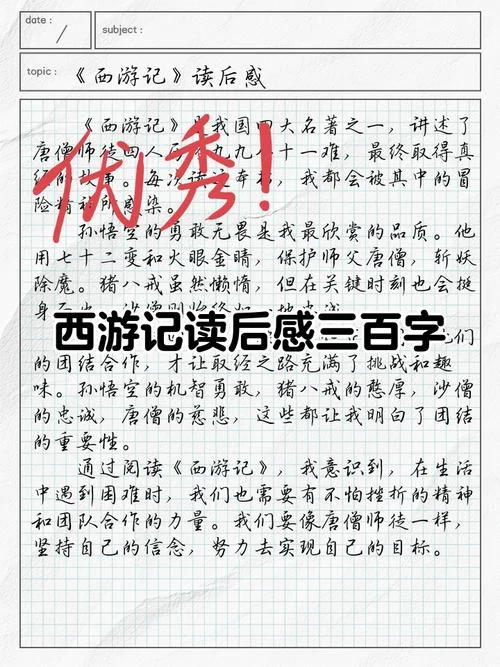 date :
subject :
topic : 《西游记》读后感
《西游记》是我国四大名著之一，讲述了
唐僧师徒四人历 九九八十一难，最终取得真
的故事。每次读这本书，我都会被其中的冒
险精神所感染。
优秀！
孙悟空的勇敢无畏是我最欣赏的品质。他
用七十二变和火眼金睛，保护师父唐僧，斩妖
除魔。猪八戒虽然懒惰，但在关键时刻也会挺
西游记读后感三百字
们
的团结合作，才让取经之路充满了挑战和趣
味。孙悟空的机智勇敢，猪八戒的憨厚，沙僧
的忠诚，唐僧的慈悲，这些都让我明白了团结
的重要性。
通过阅读《西游记》，我意识到，在生活
中遇到困难时，我们也需要有不怕挫折的精神
和团队合作的力量。我们要像唐僧师徒一样，
坚持自己的信念，努力去实现自己的目标。